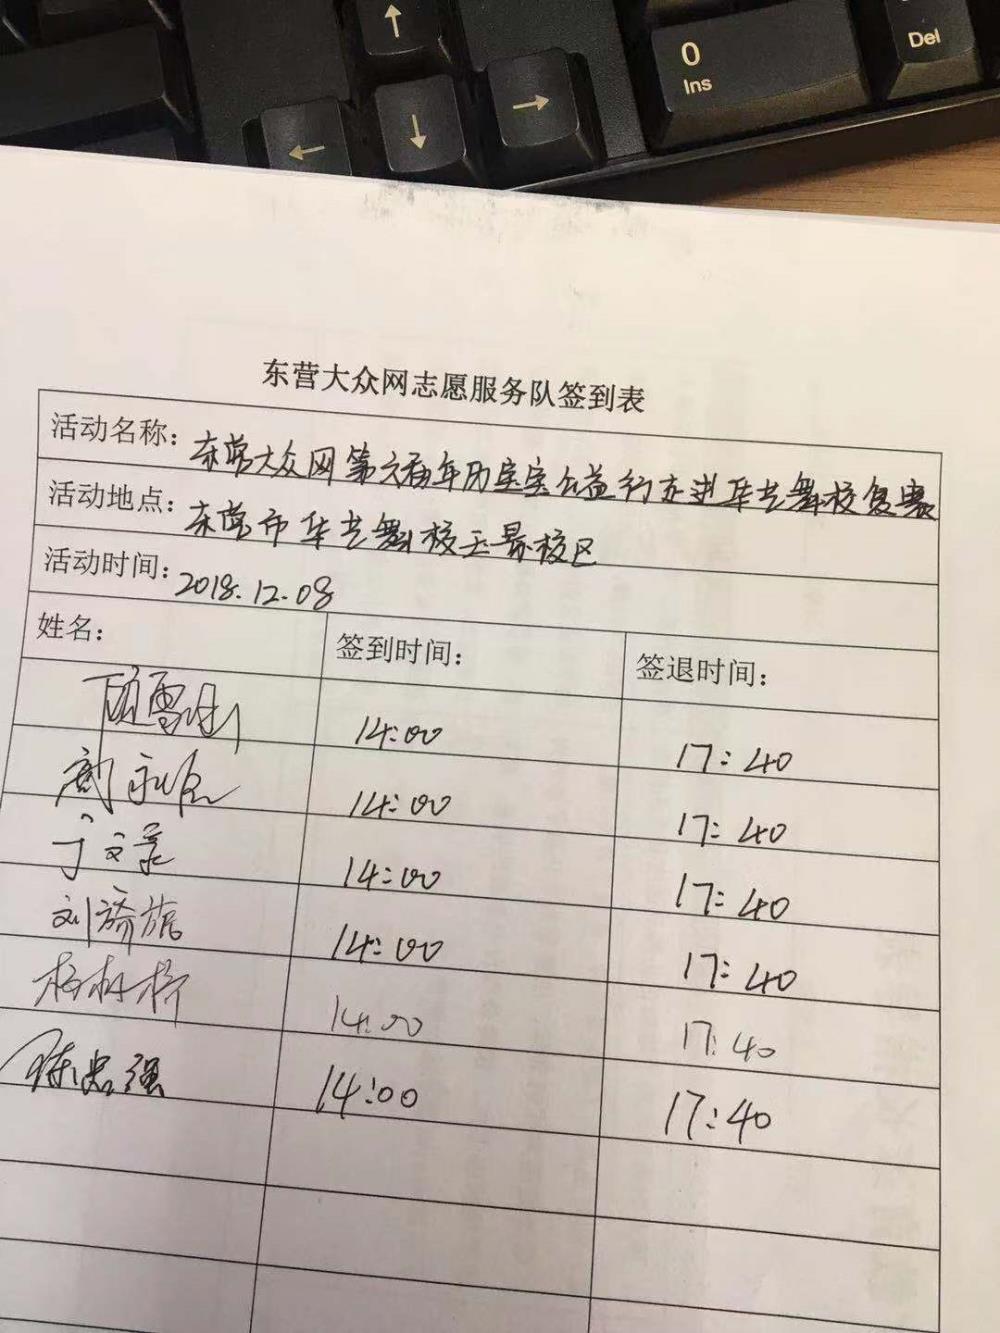 ↑
0
Ins
Del
←
↓
→
东营大众网志愿服务队签到表
活动名称：东营大众网第六届年历宝宝公益行走进华艺舞校复赛
活动地点：东营市华艺舞校玉景校区
活动时间：2018.12.08
姓名： 签到时间： 签退时间：
14:00 17:40
14:00 17:40
丁文 14:00 17:40
刘 14:00 17:40
14:00 17:40
陈忠强 14:00 17:40